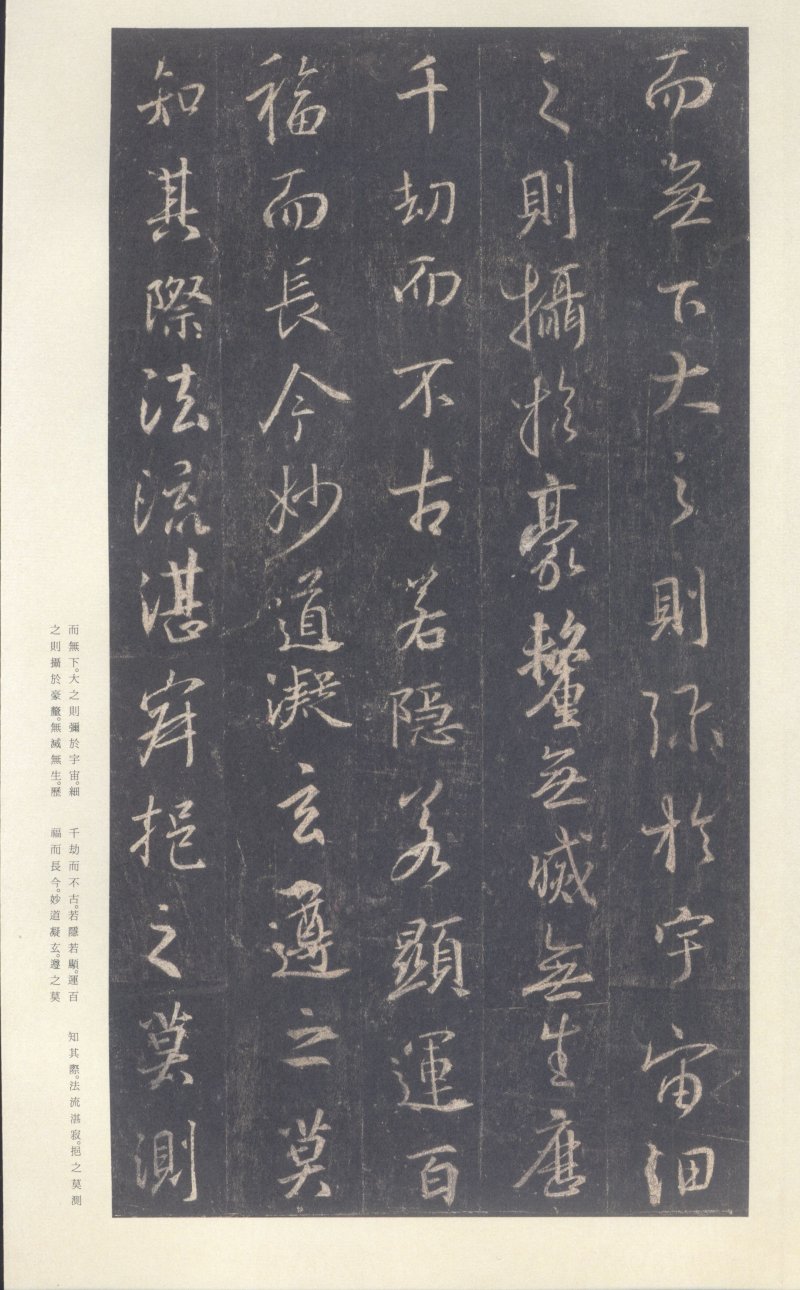 而無下大之則彌於宇宙細
之則攝於豪釐無滅無生歷
千劫而不古若隱若顯運百
福而長今妙道凝玄遵之莫
知其際法流湛寂挹之莫測
而無下。大之則彌於宇宙。細
之則攝於豪釐。無滅無生。歷
千劫而不古。若隱若顯。運百
福而長今。妙道凝玄。遵之莫
知其際。法流湛寂。挹之莫測